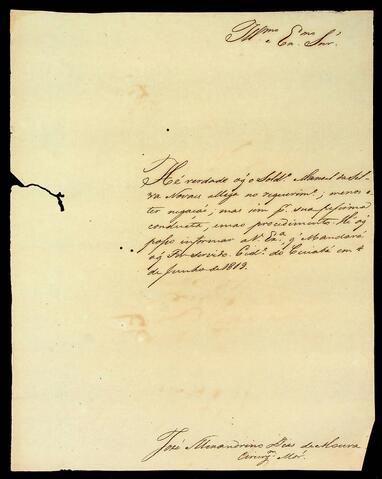 Ill.mo e Ex.mo Snr.
He verdade oq̃ o Sold.o Manoel da Sil-
va Novaes allega no requerim.to; menos o
ter negocio, mas sim p.r sua pessima
conducta, e mao procedimento. He oq̃
posso informar a V. Ex.a, q̃ Mandará
oq̃ For Servido. Cid.e do Cuiabá em 4
de Junho de 1819.
José Alexandrino Dias de Moura
Cirurg.m Mór.